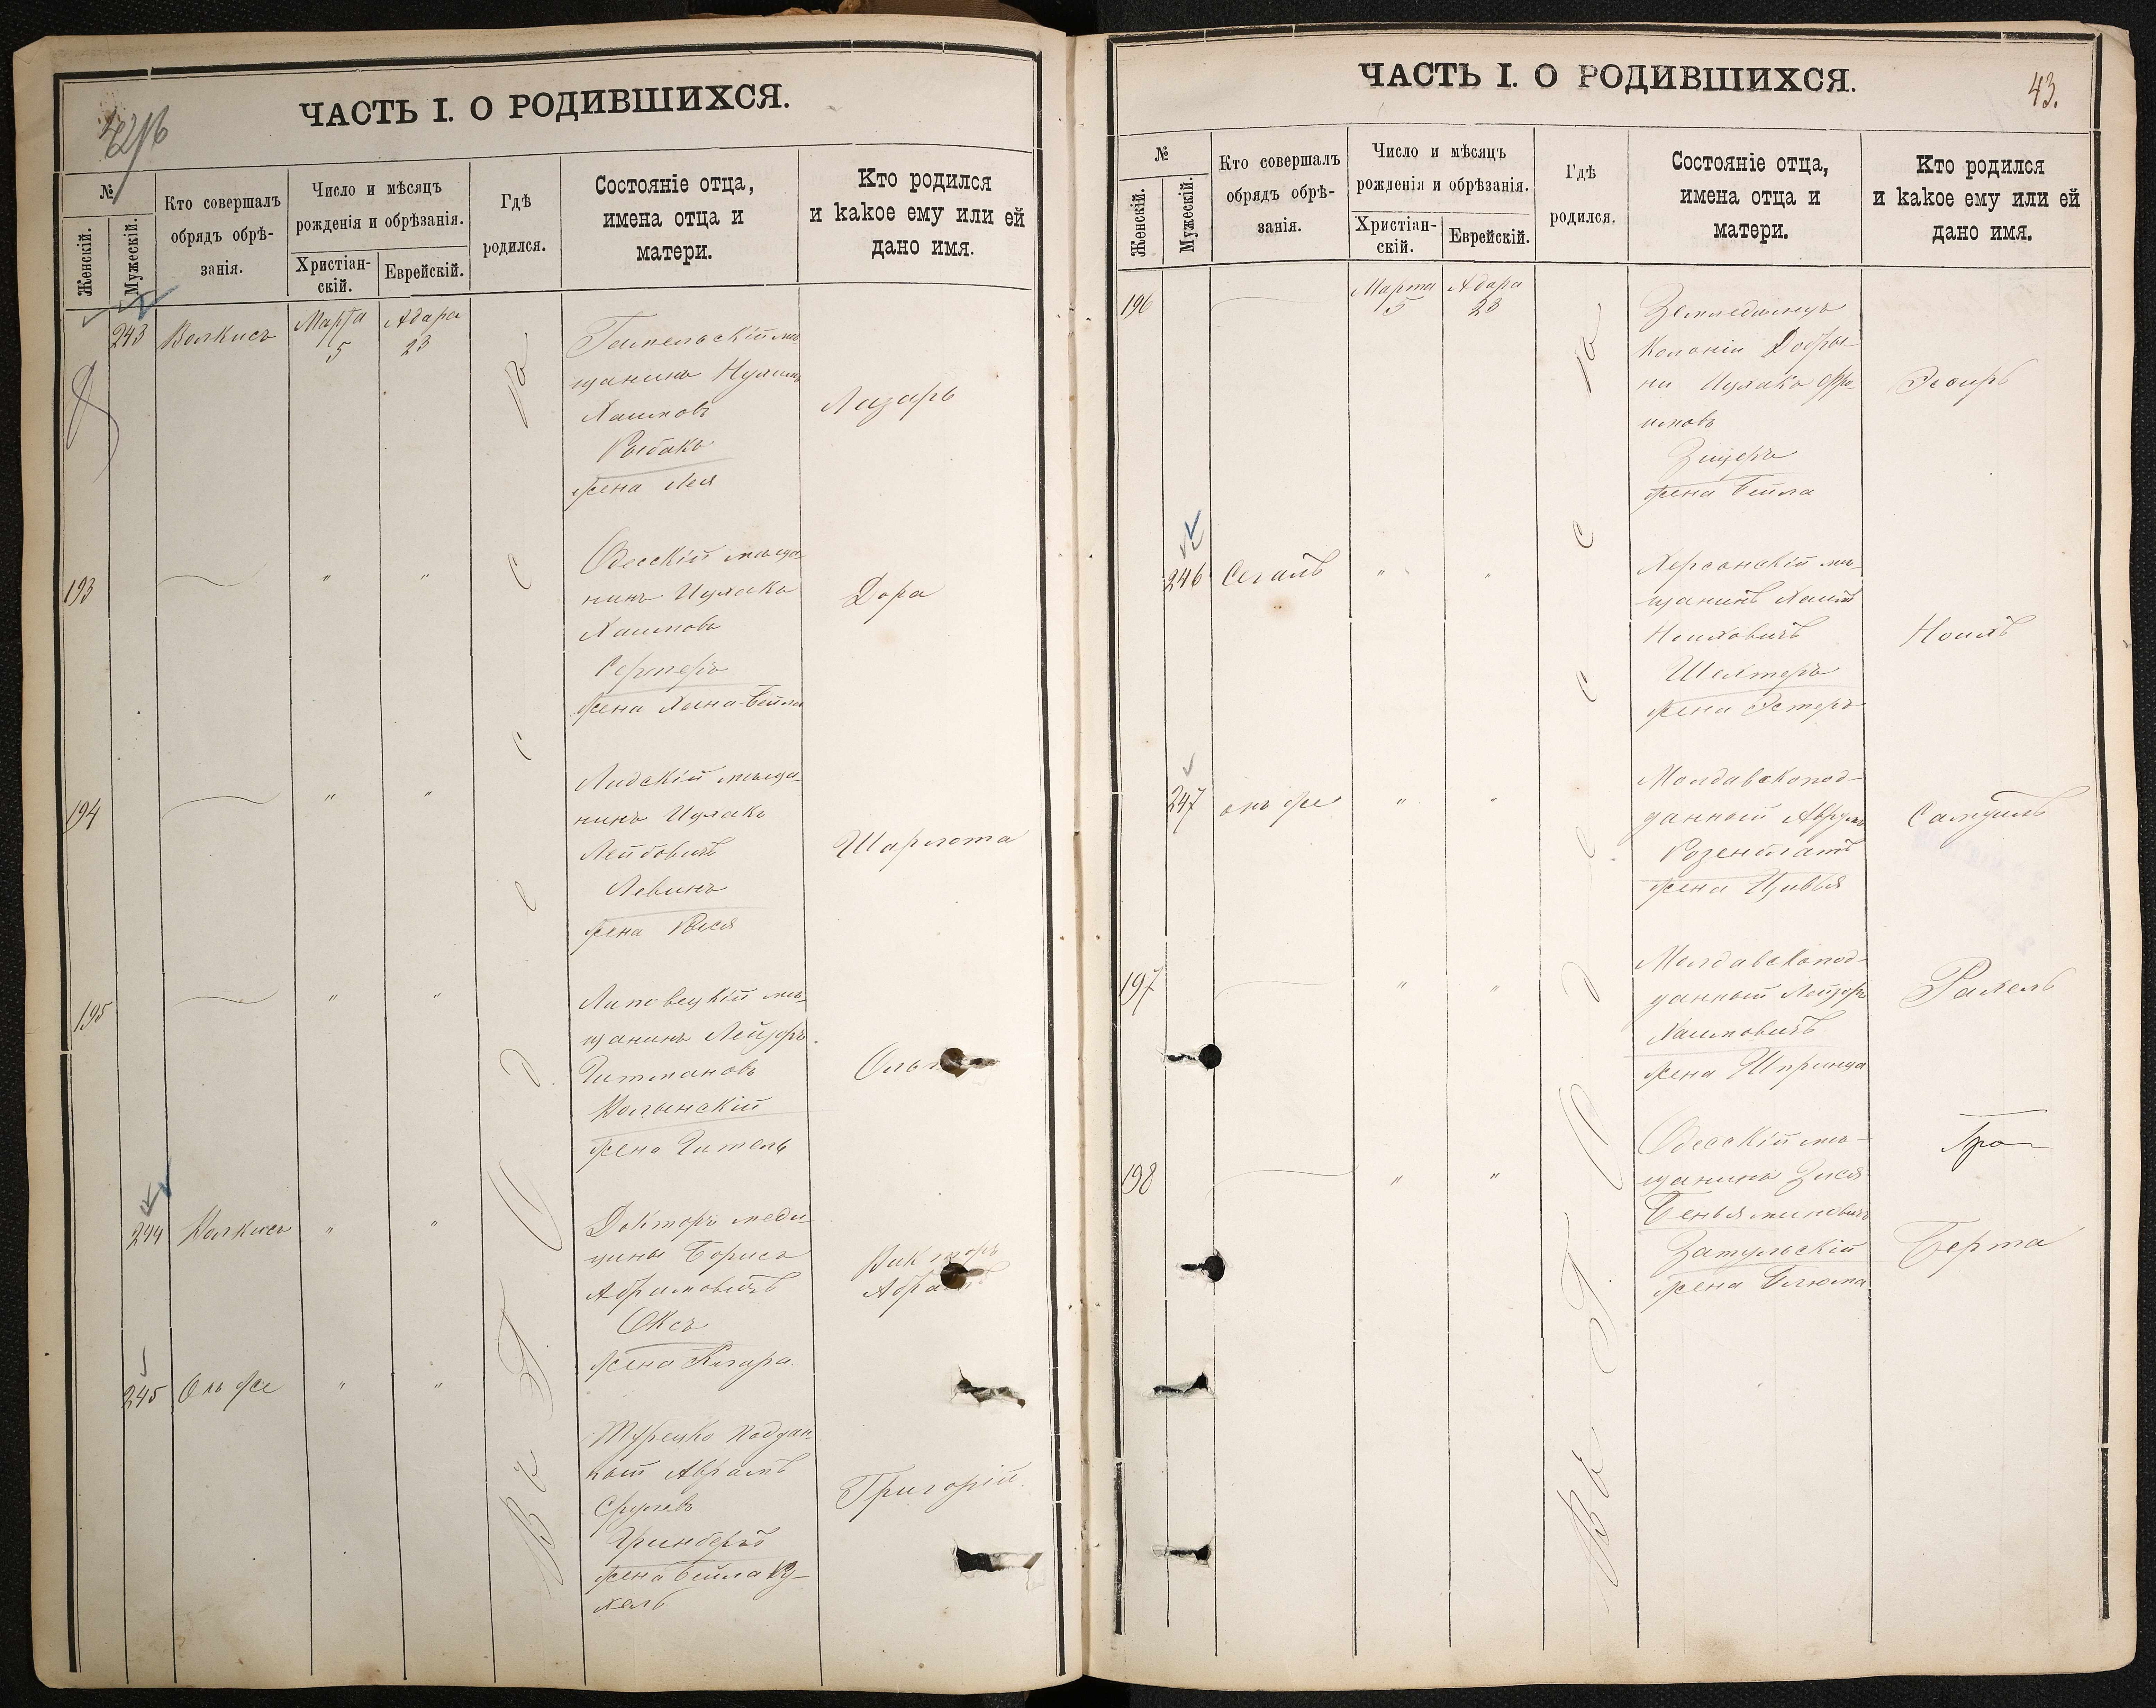 ЧАСТЬ I. О РОДИВШИХСЯ.
№
Женскій.
Мужескій.
Кто совершалъ
обрядъ обрѣ-
занія.
Число и мѣсяцъ
рожденія и обрѣзанія.
Христіан-
скій.
Еврейскій.
Гдѣ
родился.
Состояніе отца,
имена отца и
матери.
Кто родился
и какое ему или ей
дано имя.
Въ Г. Одессѣ
243
Волкисъ
Марта
5
Адара
23
Гомельскій мѣ-
щанинъ
Хаимовъ
Рыбакъ
жена Лея
Лазарь
193
" "
Одесскій мѣща-
нинъ Ицхакъ
Хаимовъ
жена Хана-Бейла
Дора
194
" "
Лидскій мѣща-
нинъ Ицхакъ
Лейбовичъ
Левинъ
жена Рыся
Шарлота
195
" "
Липовецкій мѣ-
щанинъ Лейзоръ
Гитмановъ
Волынскій
жена Гитель
Оль
244
Волкисъ
" "
Докторъ меди-
цины Борисъ
Абрамовичъ
Оксъ
жена Клара.
Викторъ
Абрамъ
245
Онъ же
" "
Турецко поддан-
ный Аврамъ
Срулевъ
Гринбергъ
жена Бейла Ру-
хель
Григорій.
ЧАСТЬ I. О РОДИВШИХСЯ.
43.
№
Женскій.
Мужескій.
Кто совершалъ
обрядъ обрѣ-
занія.
Число и мѣсяцъ
рожденія и обрѣзанія.
Христіан-
скій.
Еврейскій.
Гдѣ
родился.
Состояніе отца,
имена отца и
матери.
Кто родился
и какое ему или ей
дано имя.
Въ Г. Одессѣ
196
Марта
5
Адара
23
Земледѣлецъ
Колоніи Добры-
ни Ицхакъ Фро-
имовъ
жена Бейла
Эсфирь
246
Сегалъ
" "
Херсонскій мѣ-
щанинъ Хаимъ
Шехтеръ
жена Эстеръ
247
онъ же
" "
Молдавскопод-
данный Аврумъ
Розенблатъ
жена Цивья
Самуилъ
197
" "
Молдавскопод-
данный Лейзоръ
Хаимовичъ
жена Шпринца
Рахель
198
" "
Одесскій мѣ-
щанинъ Зися
Беньяминовичъ
Затульскій
жена Блюма
Берта